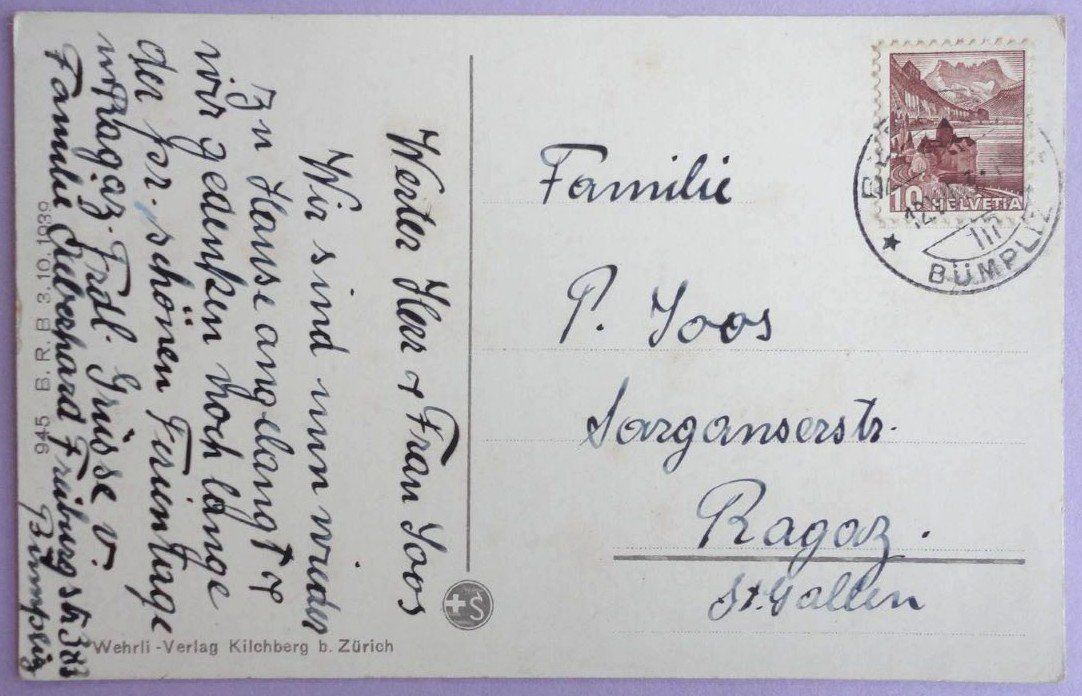 Werter Herr & Frau Joos
Wir sind nun wieder
zu Hause angelangt &
wir gedenken noch lange
der schönen Ferientage
in Ragaz. Frdl. Grüsse v.
Familie Freiburgstr. 383
Bümpliz
945 B. R. B 3.10.1939
Wehrli-Verlag Kilchberg b. Zürich
+S
10 HELVETIA
BÜMPLIZ
Familie
P. Joos
Sarganserstr.
Ragaz.
St. Gallen